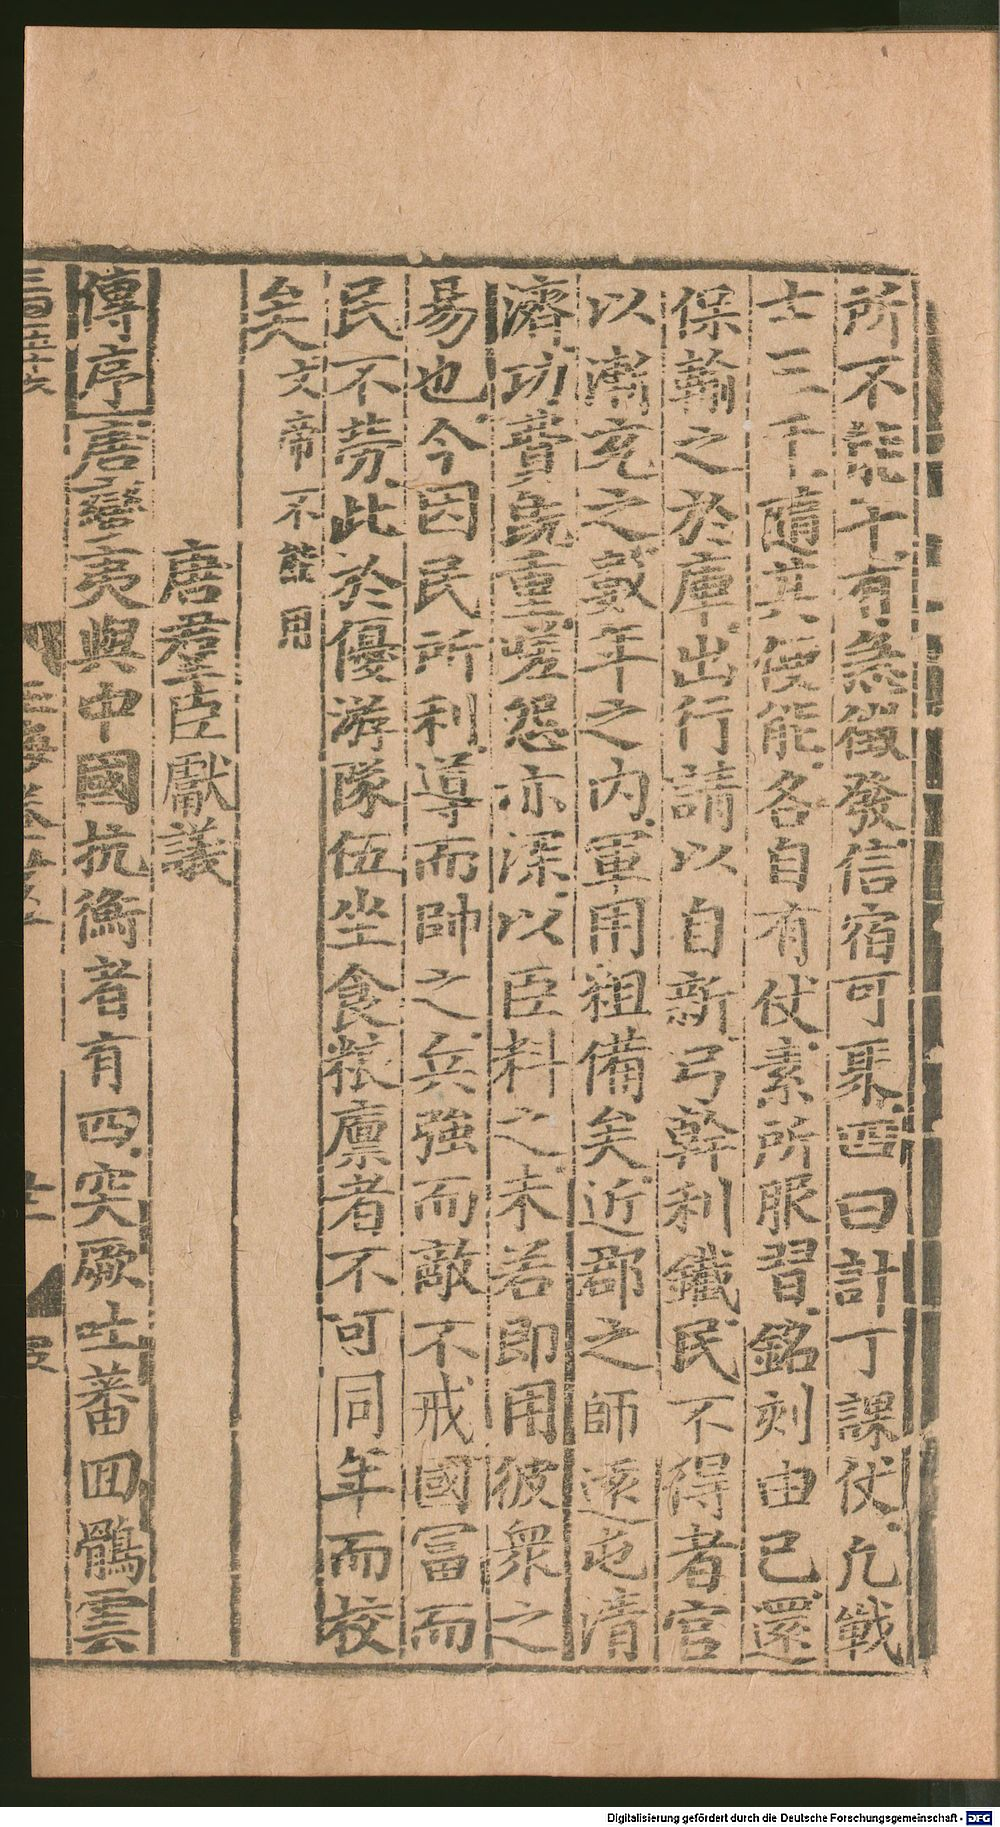 所不能干有急徵發信宿可聚四曰計丁課仗凢戰
士三千隨其便能各自有仗素所服習銘刻由已還
保輸之於庫出行請以自新弓幹利鐵民不得者官
以漸充之數年之内軍用粗備矣近郡之師逺屯清
濟功費旣重嗟怨亦深以臣料之未若即用彼衆之
易也今因民所利導而帥之兵強而敵不戒國富而
民不勞此於優游隊伍坐食粮廪者不可同年而校
矣文帝不能用
唐羣臣獻議
傳序唐蠻夷與中國抗衡者有四突厥吐蕃囬鶻雲
三百五十六
Digitalisierung gefördert durch die Deutsche Forschungsgemeinschaft - DFG